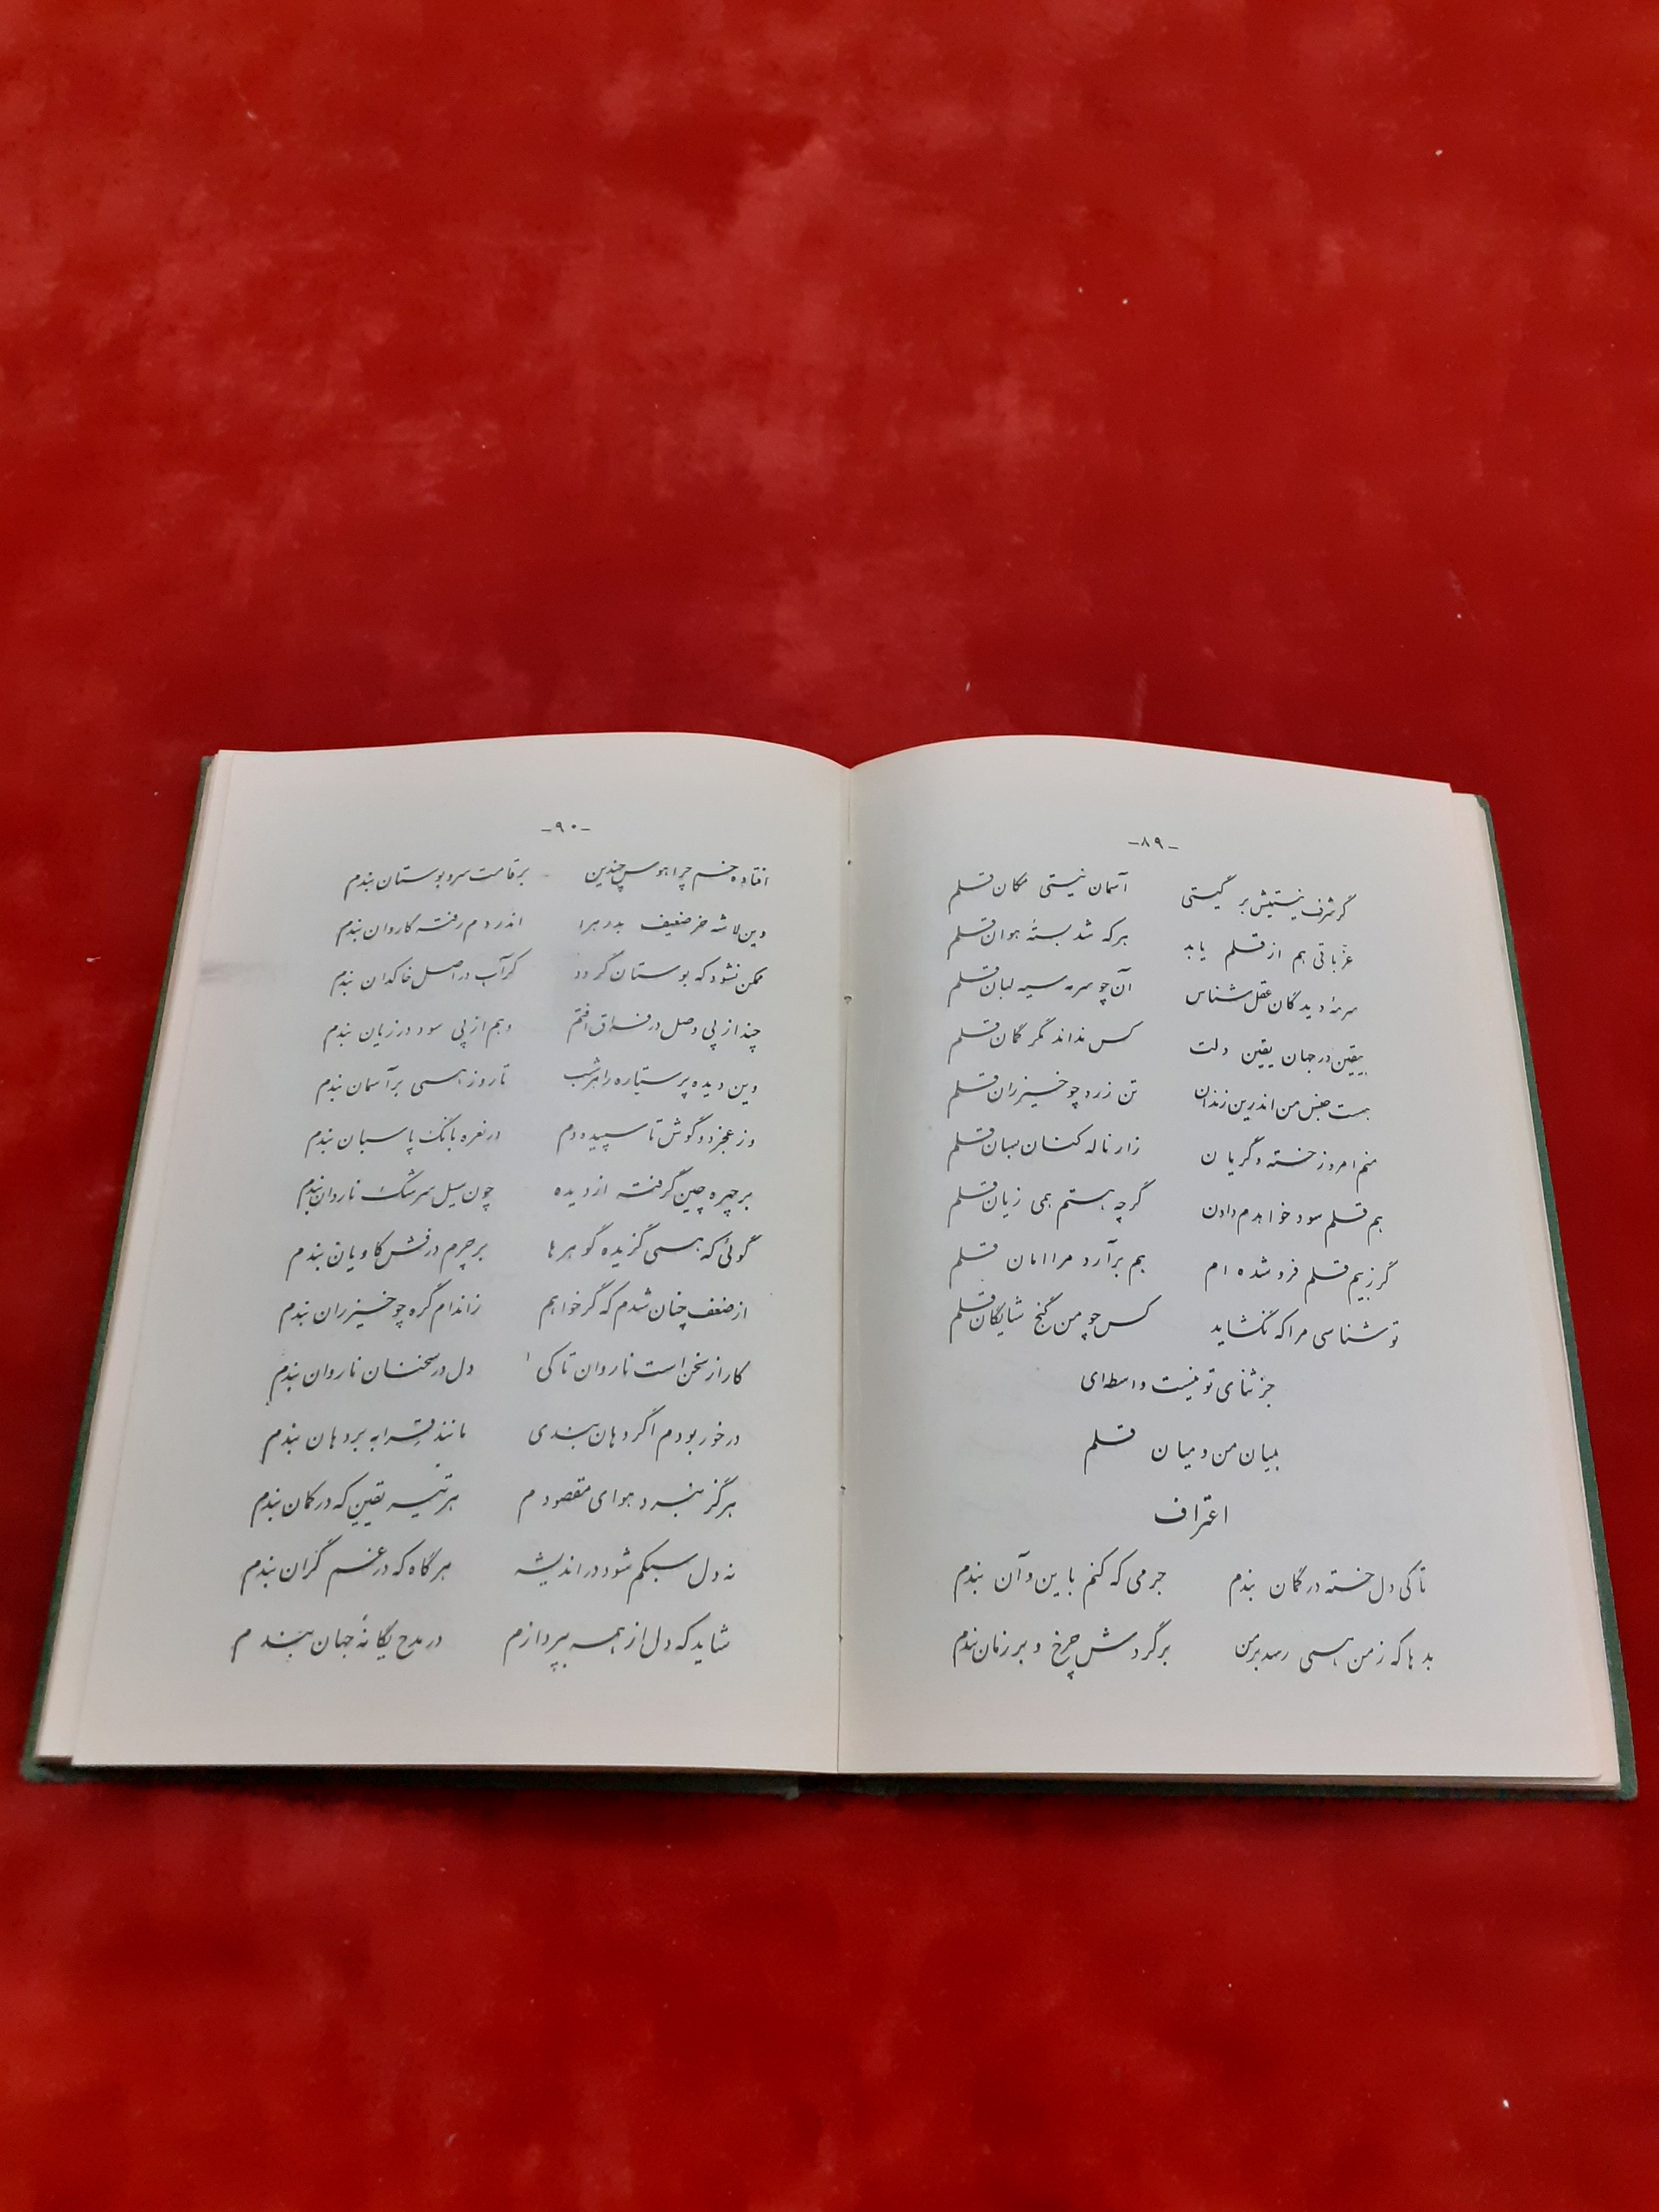 -۸۹-
گر شرف نیستیش بر گیتی آسمان نیستی مکان قلم
عز باقی هم از قلم یابد هر که شد بستهٔ هوان قلم
سرمهٔ دیدگان عقل شناس آن چو سرمه سیه لبان قلم
بیقین در جهان یقین دلت کس نداند مگر گمان قلم
هست حبس من اندرین زندان تن زرد چو خیزران قلم
منم امروز خسته و گریان زار ناله کنان بسان قلم
هم قلم سود خواهدم دادن گر چه هستم همی زیان قلم
گر ز بیم قلم فرو شده ام هم برآرد مرا امان قلم
تو شناسی مرا که نگشاید کس چو من گنج شایگان قلم
جز ثنای تو نیست واسطه‌ای
میان من و میان قلم
اعتراف
تا کی دل خسته در گمان بندم جرمی که کنم باین و آن بندم
بدها که ز من همی رسد بر من بر گردش چرخ و بر زمان بندم
-۹۰-
افتاده خسم چرا هوس چندین بر قامت سرو بوستان بندم
وین لاشه خر ضعیف بد ره را اندر دم رفته کاروان بندم
ممکن نشود که بوستان گردد گر آب در اصل خاکدان بندم
چند از پی وصل در فراق افتم وهم از پی سود در زیان بندم
وین دیده پر ستاره را هر شب تا روز همی بر آسمان بندم
وز عجز دو گوش تا سپیده دم در نعره بانگ پاسبان بندم
بر چهره چین گرفته از دیده چون سیل سرشگ ناردان بندم
گوئی که همی گزیده گوهرها بر چرم درفش کاویان بندم
از ضعف چنان شدم که گر خواهم ز اندام گره چو خیزران بندم
کار از سخن است ناروان تا کی دل در سخنان ناروان بندم
در خور بودم اگر دهان بندی مانند قرابه بر دهان بندم
هرگز نبرد هوای مقصودم هر تیر یقین که در کمان بندم
نه دل سبکم شود در اندیشه هر گاه که در غم گران بندم
شاید که دل از همه بپردازم در مدح یگانهٔ جهان بندم